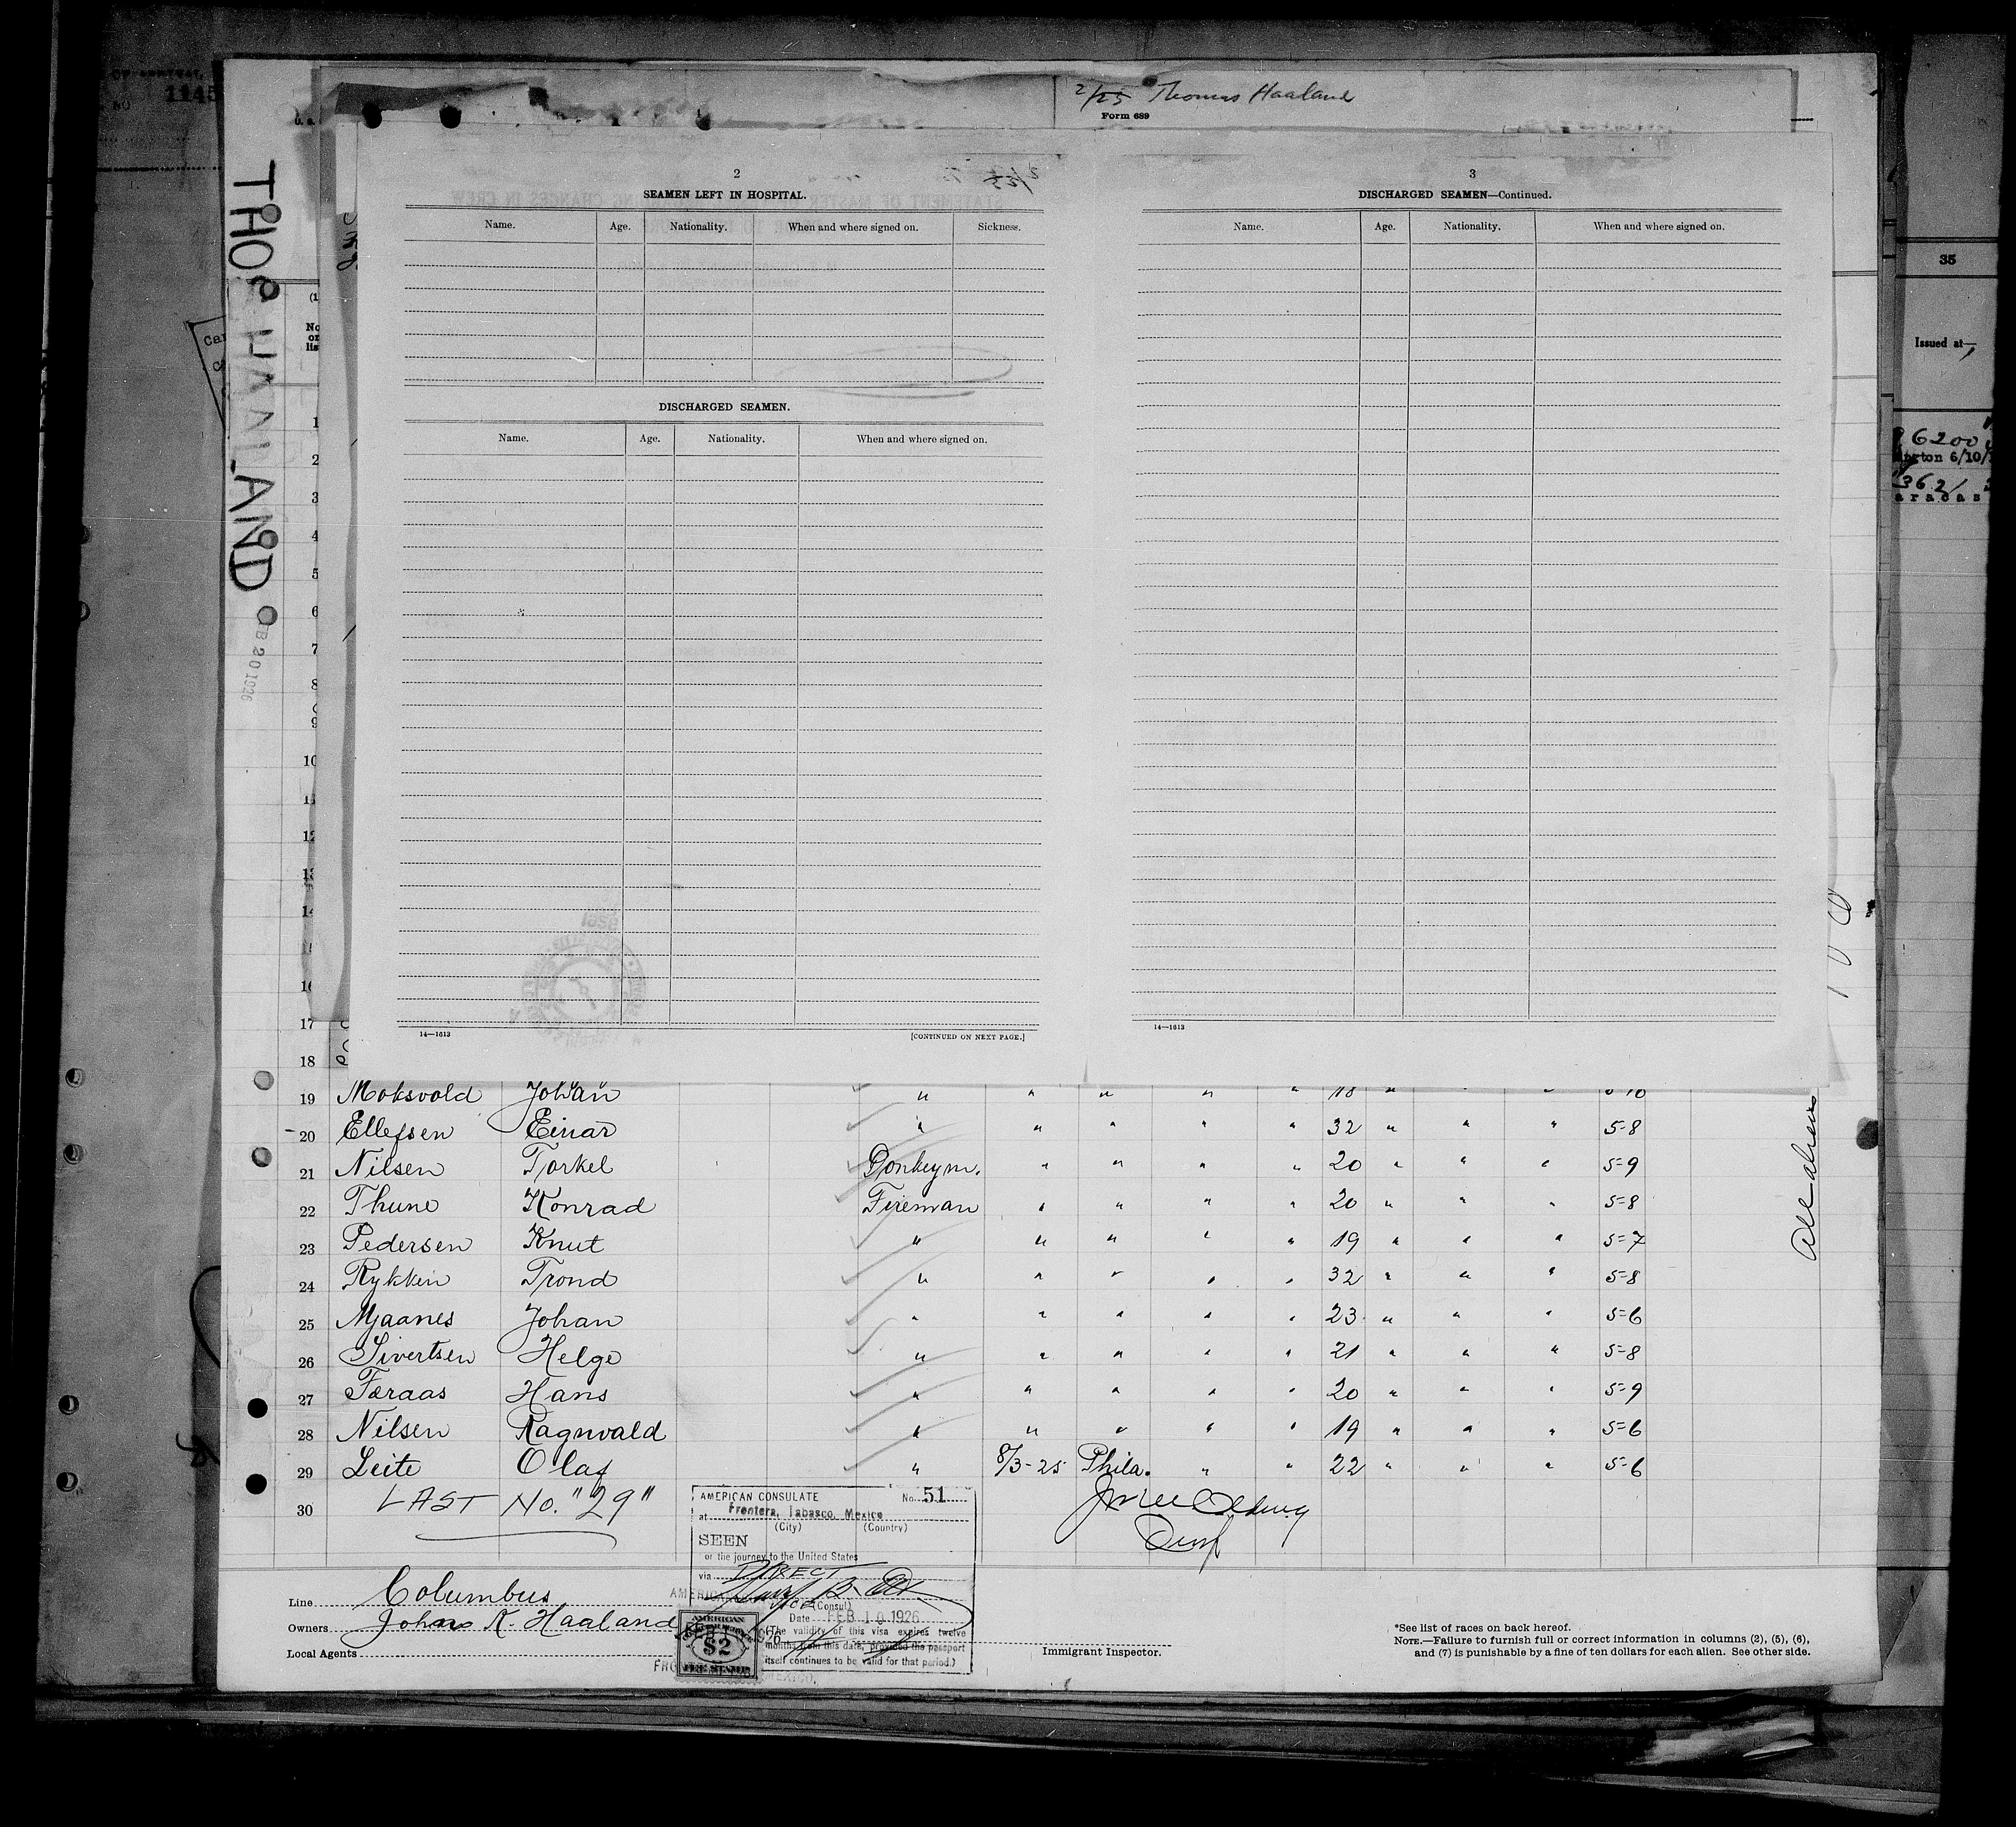 1145
2/25 Thomas Haaland
Form 689
THOS HAALAND
B 20 1926
2
SEAMEN LEFT IN HOSPITAL.
Name. Age. Nationality. When and where signed on. Sickness.
DISCHARGED SEAMEN.
Name. Age. Nationality. When and where signed on.
14—1613 [CONTINUED ON NEXT PAGE.]
3
DISCHARGED SEAMEN—Continued.
Name. Age. Nationality. When and where signed on.
14—1613
35
Issued at—
6200
6/10/
362
aracas
1
2
3
4
5
6
7
8
9
10
11
12
13
14
16
17
18
19 Moksvold Johan " " " " " 18 " " "
20 Ellefsen Einar " " " " " 32 " " " 5-8
21 Nilsen Torkel Donkeym. " " " " 20 " " " 5=9
22 Thune Konrad Fireman " " " " 20 " " " 5=8
23 Pedersen Knut " " " " " 19 " " " 5=7
24 Rykkin Trond " " " " " 32 " " " 5=8
25 Mjaanes Johan " " " " " 23 " " " 5=6
26 Sivertsen Helge " " " " " 21 " " " 5=8
27 Færaas Hans " " " " " 20 " " " 5=9
28 Nilsen Ragnvald " " " " " 19 " " " 5=6
29 Leite Olaf " 8/3-25 Phila. " " 22 " " " 5-6
30 LAST No. "29"
All aliens
AMERICAN CONSULATE No. 51
at Frontera, Tabasco, Mexico
(City) (Country)
SEEN
or the journey to the United States
via DIRECT
(Consul)
Date FEB 10 1926
(The validity of this visa expires twelve
months from this date, provided the passport
itself continues to be valid for that period.)
AMERICAN
$2
FEE STAMP
MEXICO.
Line Columbus
Owners Johns K. Haaland
Local Agents
Immigrant Inspector.
*See list of races on back hereof.
NOTE.—Failure to furnish full or correct information in columns (2), (5), (6),
and (7) is punishable by a fine of ten dollars for each alien. See other side.